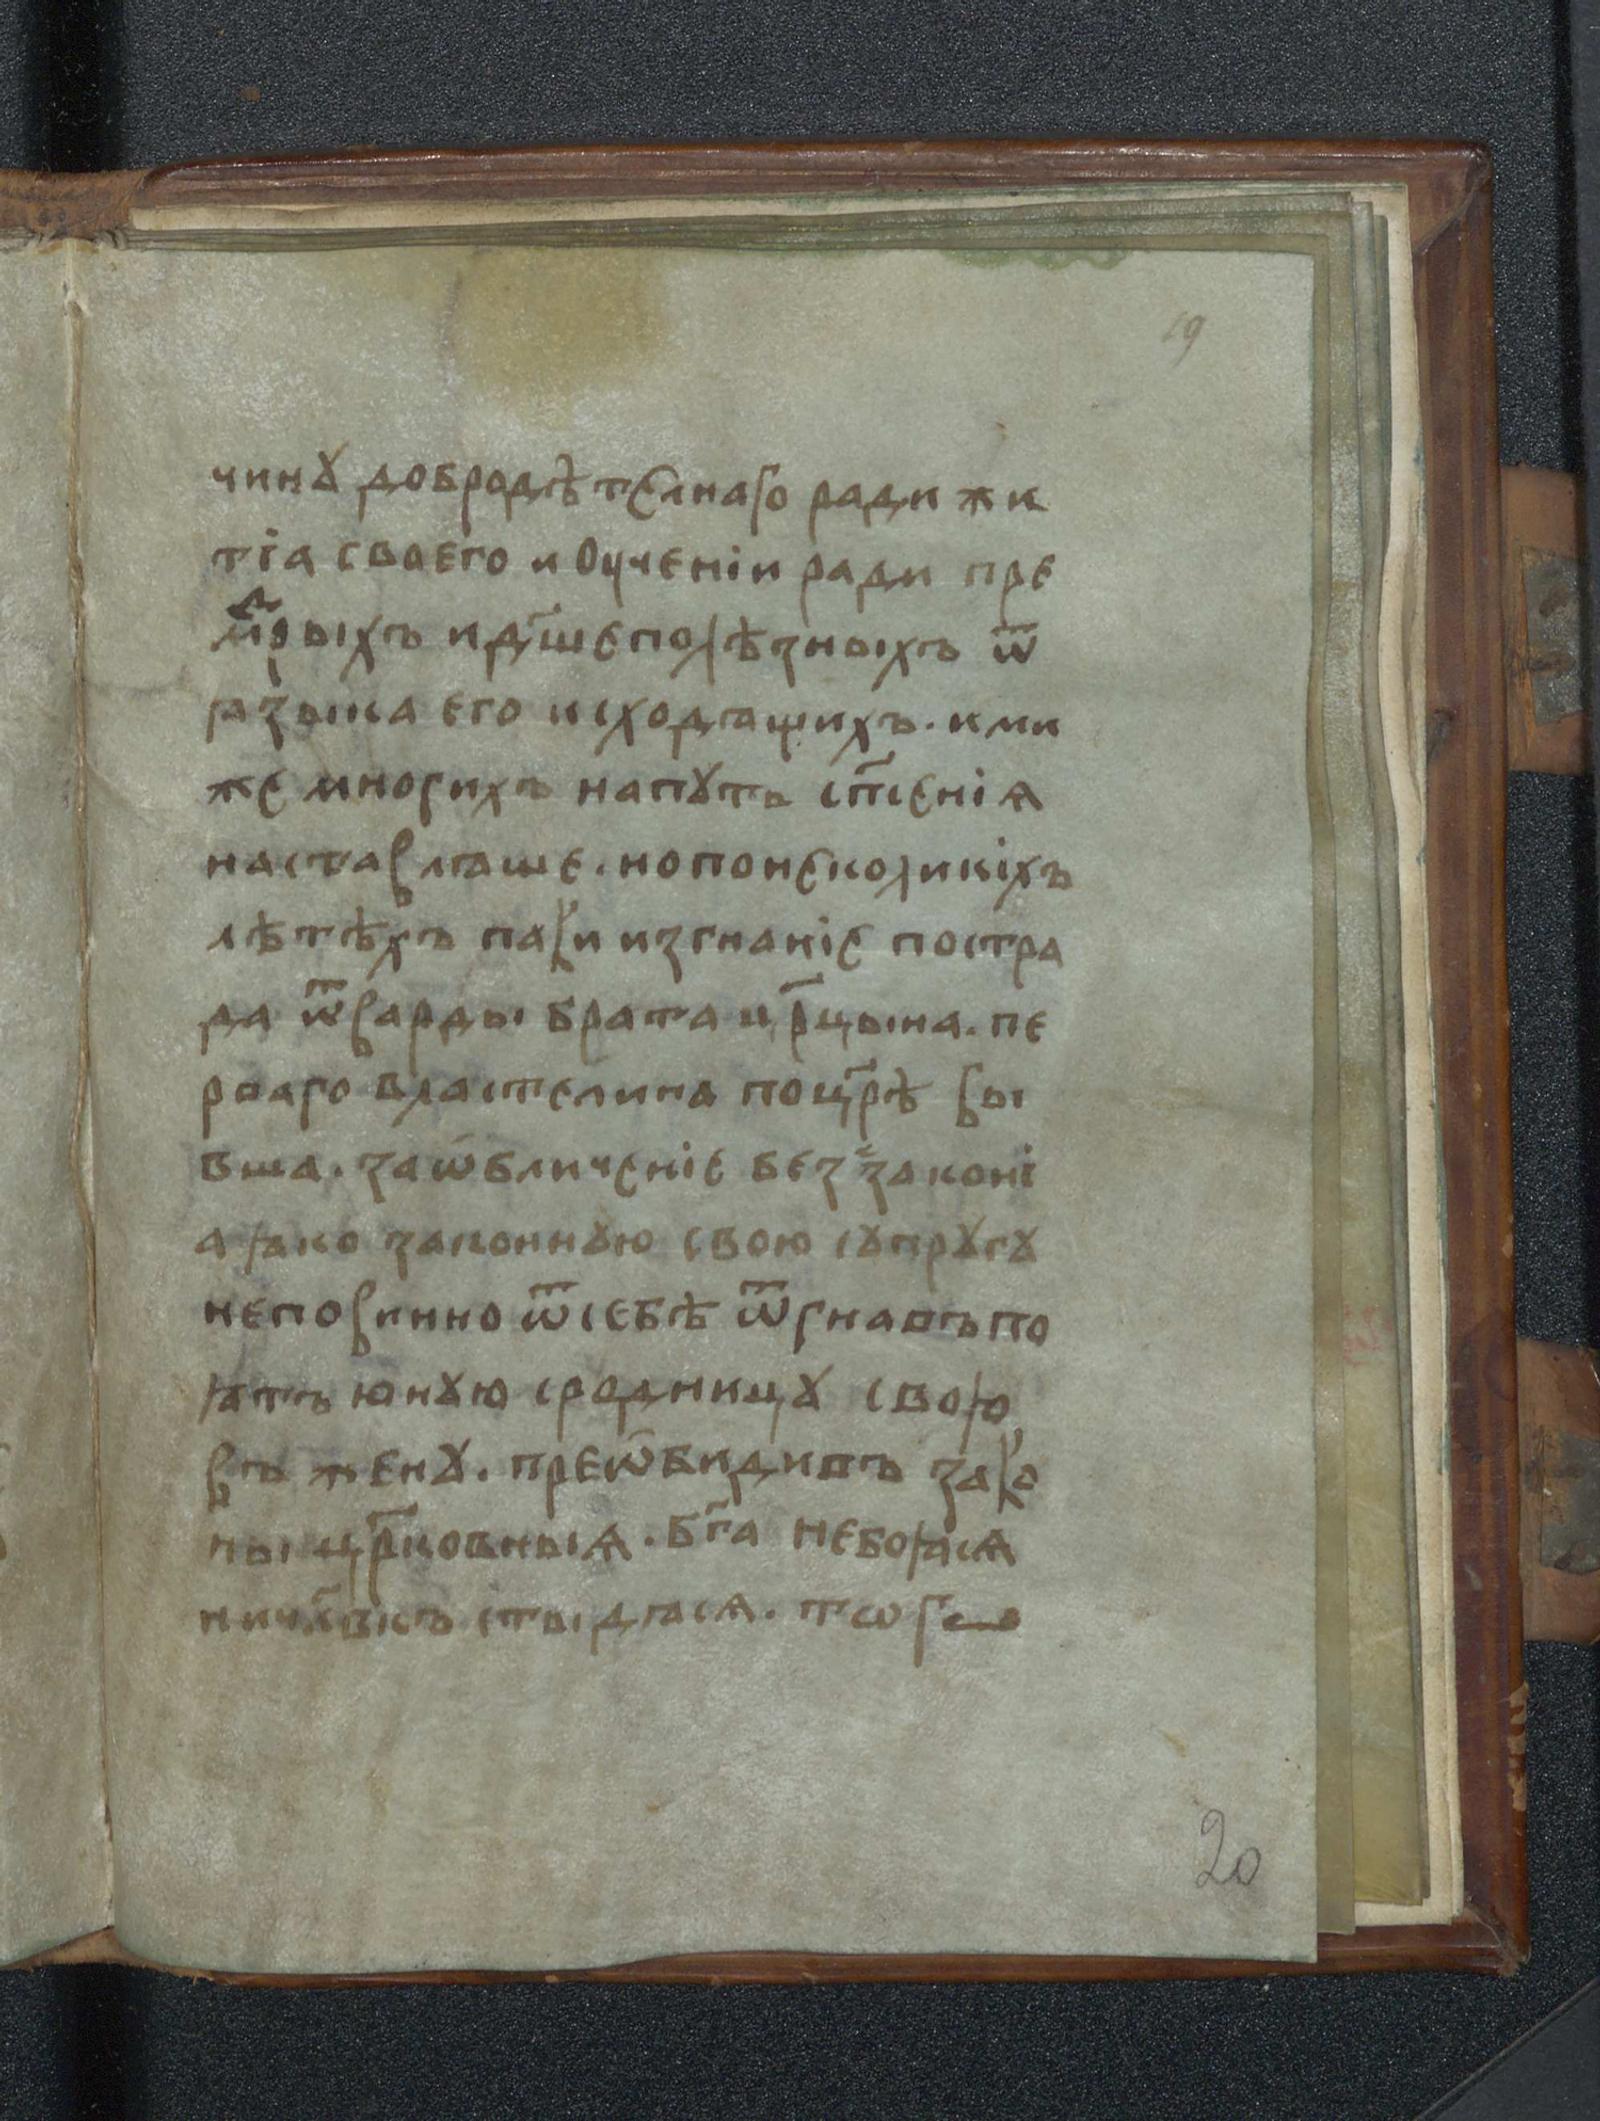 19
чинꙋ добродѣтелнаго ради жи
тїа своего и Оученїи ради пре
мⷣрыхъ и дш҃еполѣзныхъ ѿ
ꙗзыка его исходꙗщихъ. ими
же многихъ напꙋть сп҃сенїѧ
наставлꙗше. но понеколикїхъ
лѣтѣхъ паки изгнанїе постра
да ѿварды брата цр҃цына. пе
рваго властелина по цр҃ѣ бы
вша. заѡбличенїе беззаконї
а ꙗко законнꙋю свою сꙋпрꙋгꙋ
неповинно ѿсебѣ ѿгнавъ по
ꙗтъ юнꙋю сродницꙋ свою
въ женꙋ. преѡбидивъ зако
ны цр҃ковныѧ. бг҃а небоꙗсѧ
ни чл҃вкъ стыдꙗсѧ. тѡго
20